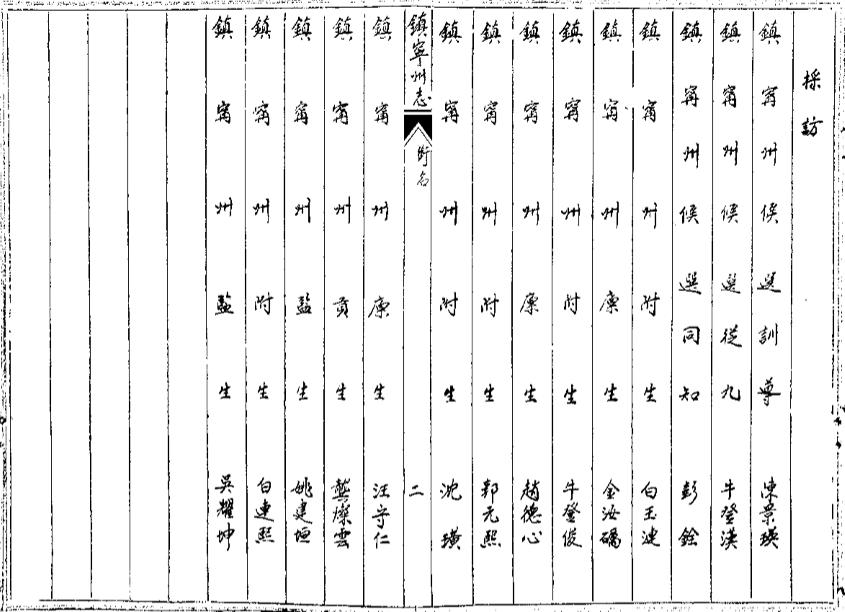 採訪
鎮甯州候選訓導陳景瑛
鎮甯州候選從九牛登漢
鎮甯州候選同知彭銓
鎮甯州附生白玉漣
鎮甯州廩生金汝礪
鎮甯州附生牛登俊
鎮甯州廩生趙德心
鎮甯州附生郭元熙
鎮甯州附生沈璜
鎮寧州志 街名 二
鎮甯州廩生汪守仁
鎮甯州貢生龔燦雲
鎮甯州監生姚建垣
鎮甯州附生白連熙
鎮甯州監生吳耀坤